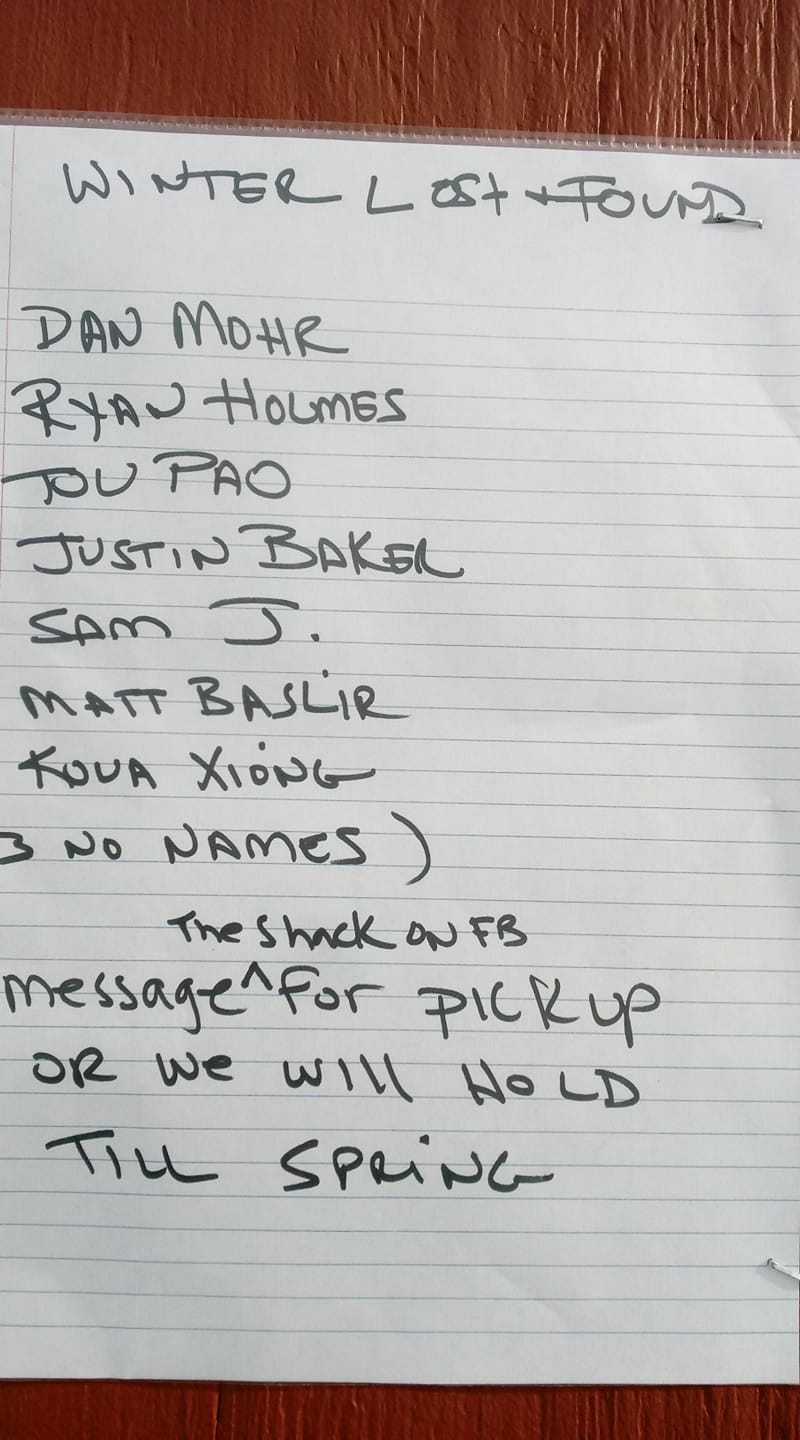 WINTER LOST + FOUND
DAN MOHR
RYAN HOLMES
TOU PAO
JUSTIN BAKER
SAM J.
MATT BASLIR
KOUA XIONG
3 NO NAMES)
The Shack ON FB
message ^ for PICK UP
OR We WILL HOLD
TILL SPRING